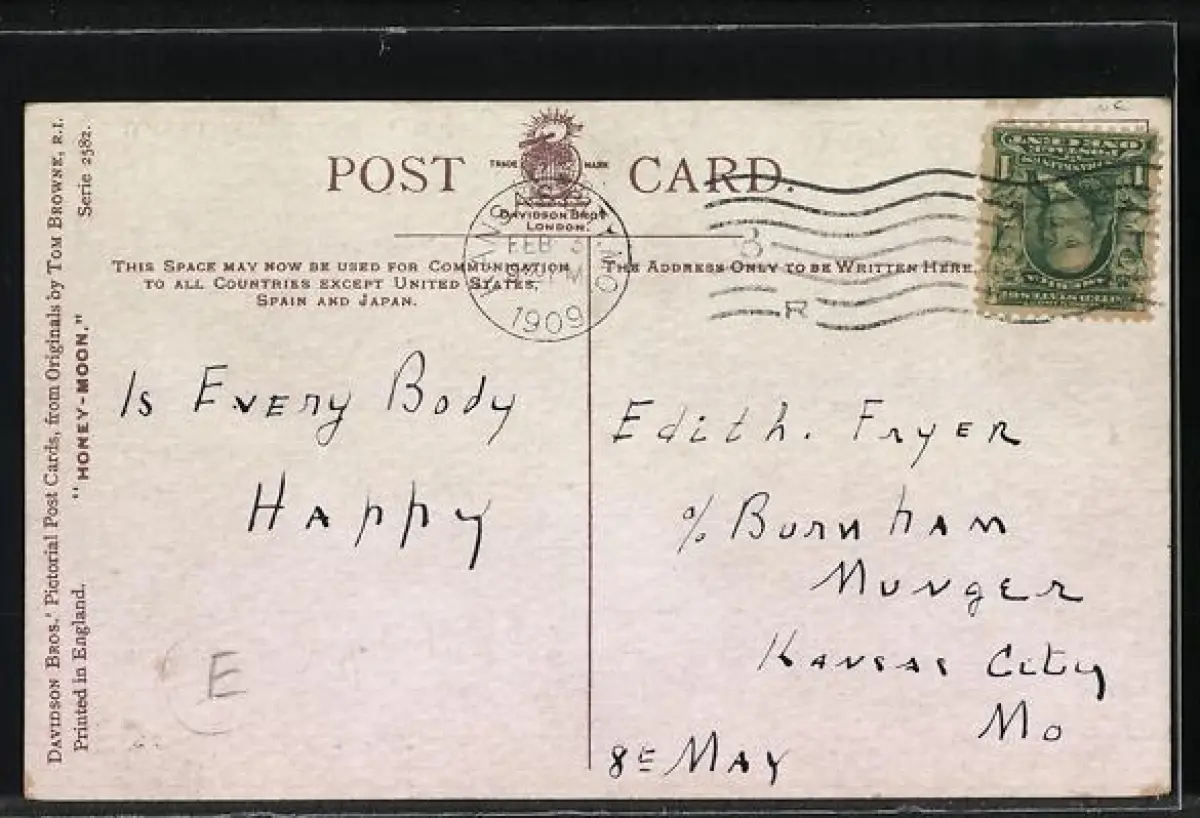 DAVIDSON BROS.' Pictorial Post Cards, from Originals by TOM BROWNE, R.I.
Printed in England.
"HONEY-MOON."
Serie 2582.
POST CARD.
TRADE MARK
DAVIDSON BROS
LONDON.
FEB 3
1909
THIS SPACE MAY NOW BE USED FOR COMMUNICATION
TO ALL COUNTRIES EXCEPT UNITED STATES,
SPAIN AND JAPAN.
THE ADDRESS ONLY TO BE WRITTEN HERE.
R
Is Every Body
Happy
E
Edith. Fryer
% Burnham
Munger
Kansas City
Mo
8E May